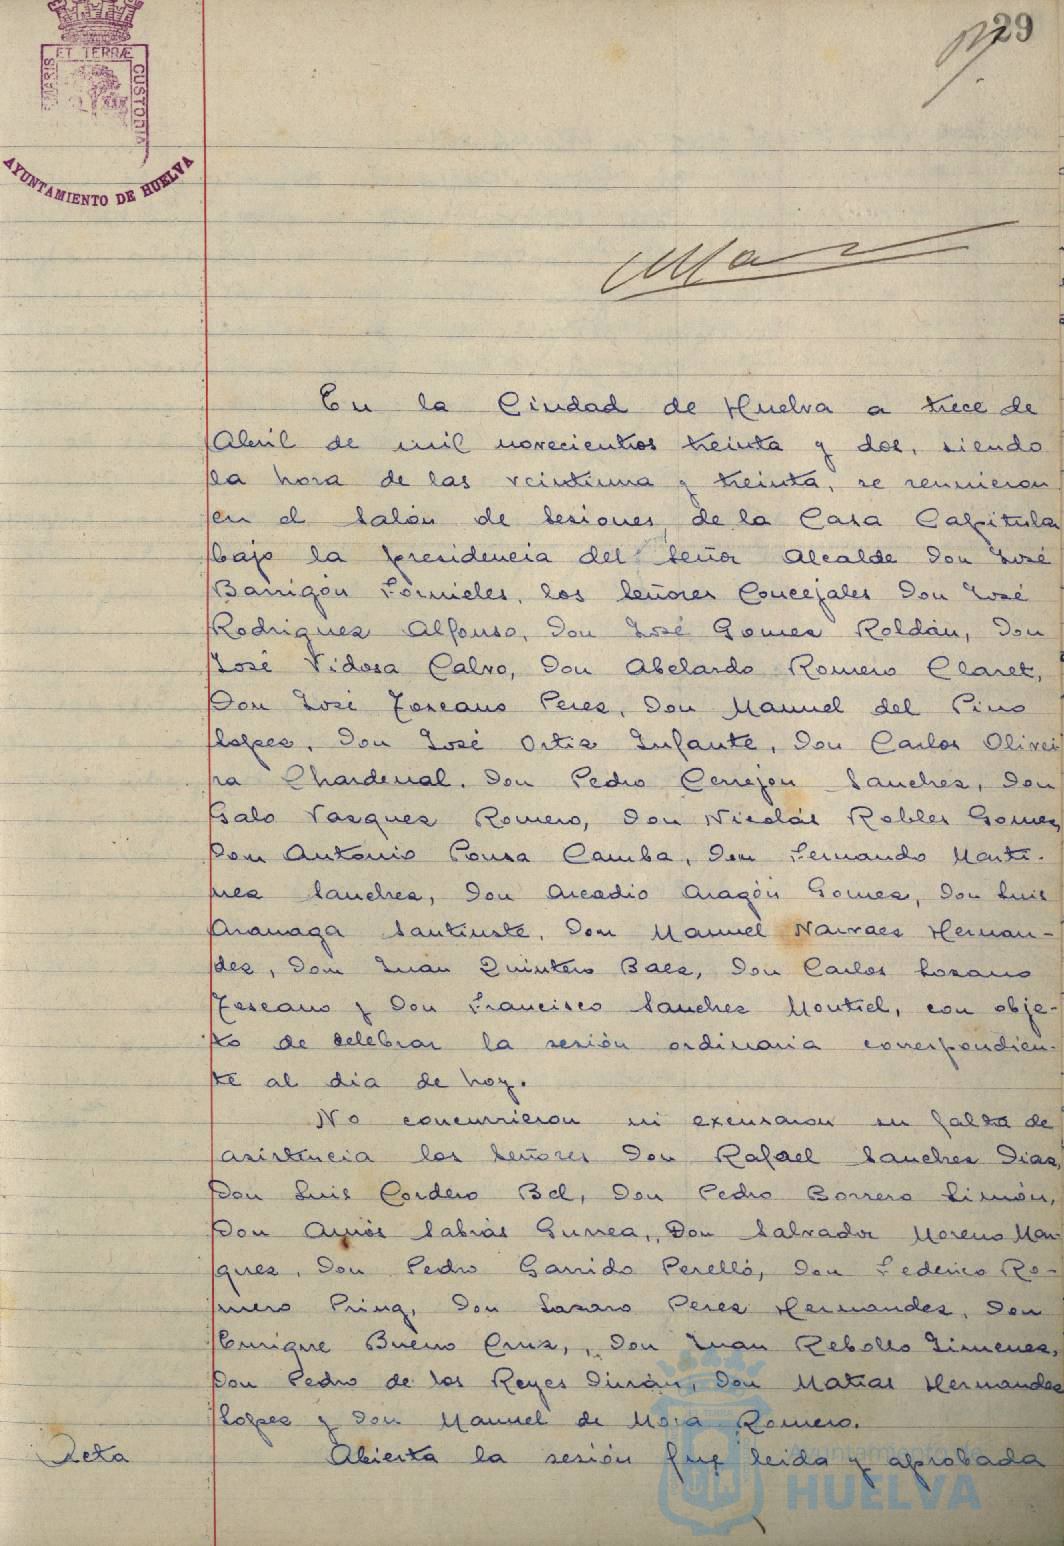 29
MARIS ET TERRÆ CUSTODIA
AYUNTAMIENTO DE HUELVA
En la Ciudad de Huelva a trece de
Abril de mil novecientos treinta y dos, siendo
la hora de las veintiuna y treinta, se reunieron
en el Salón de Sesiones, de la Casa Capitula
bajo la presidencia del Señor Alcalde Don José
Barrigón Fornieles, los Señores Concejales Don José
Rodriguez Alfonso, Don José Gomez Roldán, Don
José Vidosa Calvo, Don Abelardo Romero Claret,
Don José Toscano Perez, Don Manuel del Pino
Lopez, Don José Ortiz Infante, Don Carlos Olivei
ra Chardenal, Don Pedro Cerrejon Sanchez, Don
Galo Vazquez Romero, Don Nicolás Robles Gomez,
Don Antonio Pousa Camba, Don Fernando Marti-
nez Sanchez, Don Arcadio Aragón Gomez, Don Luis
Aranaga Santiuste, Don Manuel Narvaez Hernan-
dez, Don Juan Quintero Baez, Don Carlos Lozano
Toscano y Don Francisco Sanchez Montiel, con obje-
to de celebrar la sesión ordinaria correspondien-
te al dia de hoy.
No concurrieron ni excusaron su falta de
asistencia los Señores Don Rafael Sanchez Diaz,
Don Luis Cordero Bel, Don Pedro Borrero Limón,
Don Amós Sabrás Gurrea, Don Salvador Moreno Mar
quez, Don Pedro Garrido Perelló, Don Federico Ro-
mero Pring, Don Lazaro Perez Hernandez, Don
Enrique Bueno Cruz, Don Juan Rebollo Jimenez,
Don Pedro de los Reyes Durán, Don Matias Hernandez
Lopez y Don Manuel de Mora Romero.
Acta Abierta la sesión fue leida y aprobada
Ayuntamiento de
HUELVA